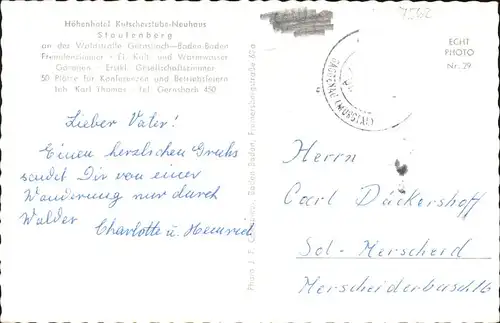 7562
Höhenhotel Kutscherstube-Neuhaus
Staufenberg
an der Waldstraße Gernsbach—Baden-Baden
Fremdenzimmer · Fl. Kalt- und Warmwasser
Garagen · Erstkl. Gesellschaftszimmer
50 Plätze für Konferenzen und Betriebsfeiern
Inh. Karl Thomas · Tel. Gernsbach 450
ECHT
PHOTO
Nr. 29
GAGGENAU (MURGTAL)
Lieber Vater!
Einen herzlichen Gruß
sendet Dir von einer
Wanderung nur durch
Wälder
Charlotte u. Heinrich
Baden-Baden,
Herrn
Carl Dückershoff
Sol.-Merscheid
Merscheiderbusch 16